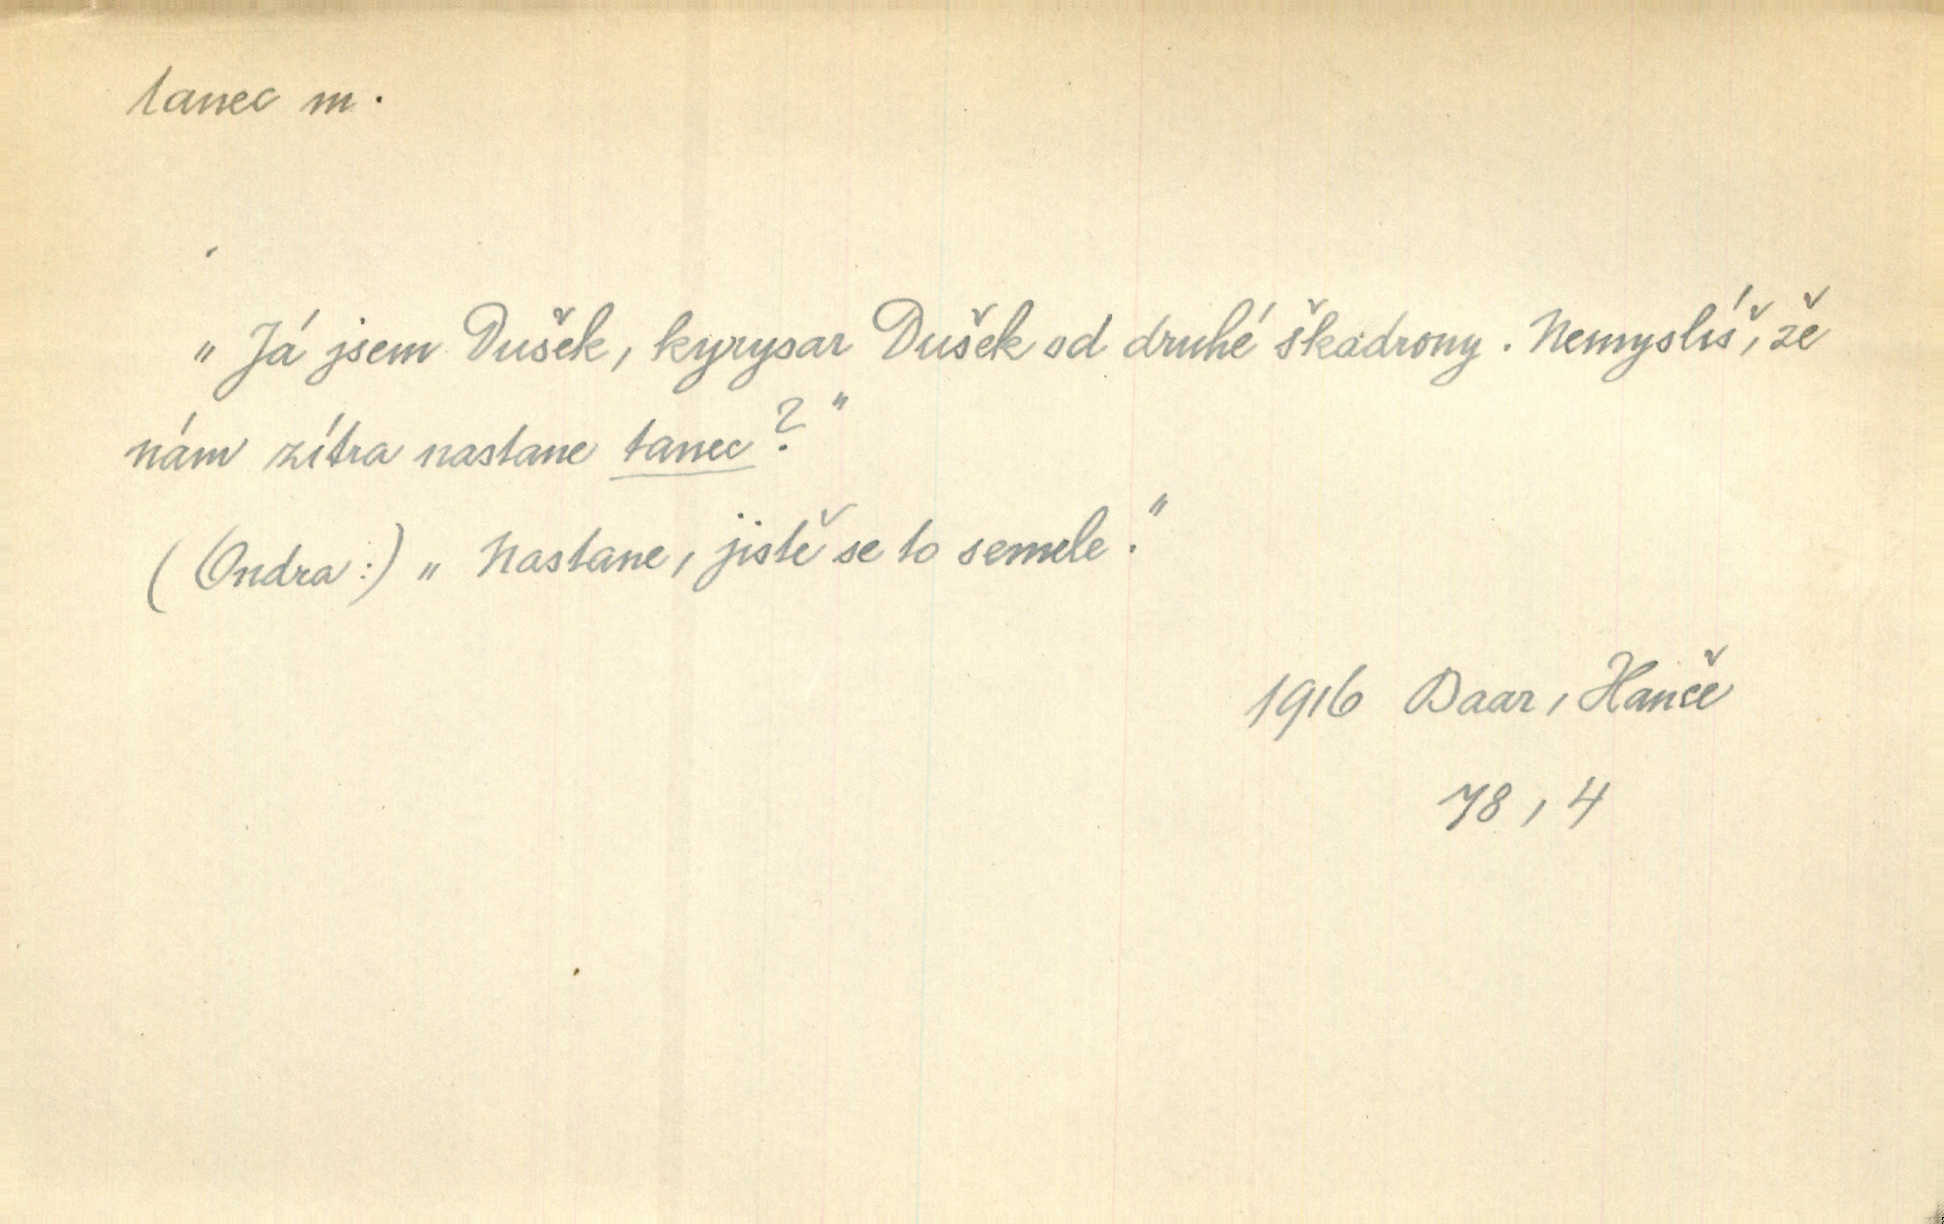 tanec m.
„Já jsem Dušek, kyrysar Dušek od druhé škadrony. Nemyslíš, že
nám zítra nastane tanec?"
(Ondra:) „Nastane, jistě se to semele."
1916 Baar, Hanče
78, 4